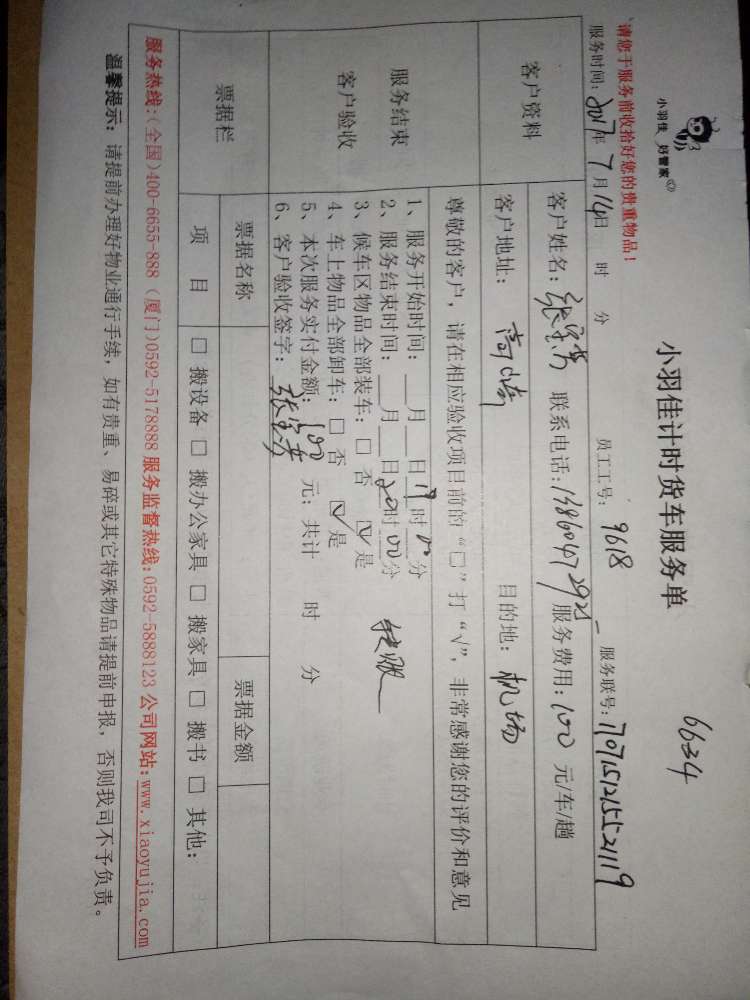 小羽佳 好管家
小羽佳计时货车服务单
6634
请您于服务前收拾好您的贵重物品！
服务时间：2017年7月14日 时 分 员工工号：9618 服务联号：1707151215521119
客户资料
客户姓名： 联系电话： 服务费用：100元/车/趟
客户地址：高崎 目的地：机场
服务结束
客户验收
尊敬的客户，请在相应验收项目前的“□”打“√”，非常感谢您的评价和意见
1、服务开始时间：___月___日19时00分
2、服务结束时间：___月___日20时00分
3、候车区物品全部装车：□ 否 ☑ 是
4、车上物品全部卸车：□ 否 ☑ 是
5、本次服务实付金额：100元；共计 时 分
6、客户验收签字：
票据栏
票据名称 票据金额
项 目 □ 搬设备 □ 搬办公家具 □ 搬家具 □ 搬书 □ 其他：
服务热线:(全国)400-6655-888 (厦门)0592-5178888 服务监督热线:0592-5888123 公司网站:www.xiaoyujia.com
温馨提示：请提前办理好物业通行手续，如有贵重、易碎或其它特殊物品请提前申报，否则我司不予负责。